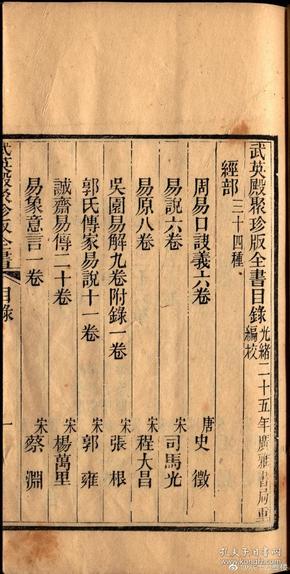 武英殿聚珍版全書目錄 光緒二十五年廣雅書局重編校
經部 三十四種
周易口訣義六卷 唐 史徵
易說六卷 宋 司馬光
易原八卷 宋 程大昌
吳園易解九卷附錄一卷 宋 張根
郭氏傳家易說十一卷 宋 郭雍
誠齋易傳二十卷 宋 楊萬里
易象意言一卷 宋 蔡淵
武英殿聚珍版全書 目錄 一